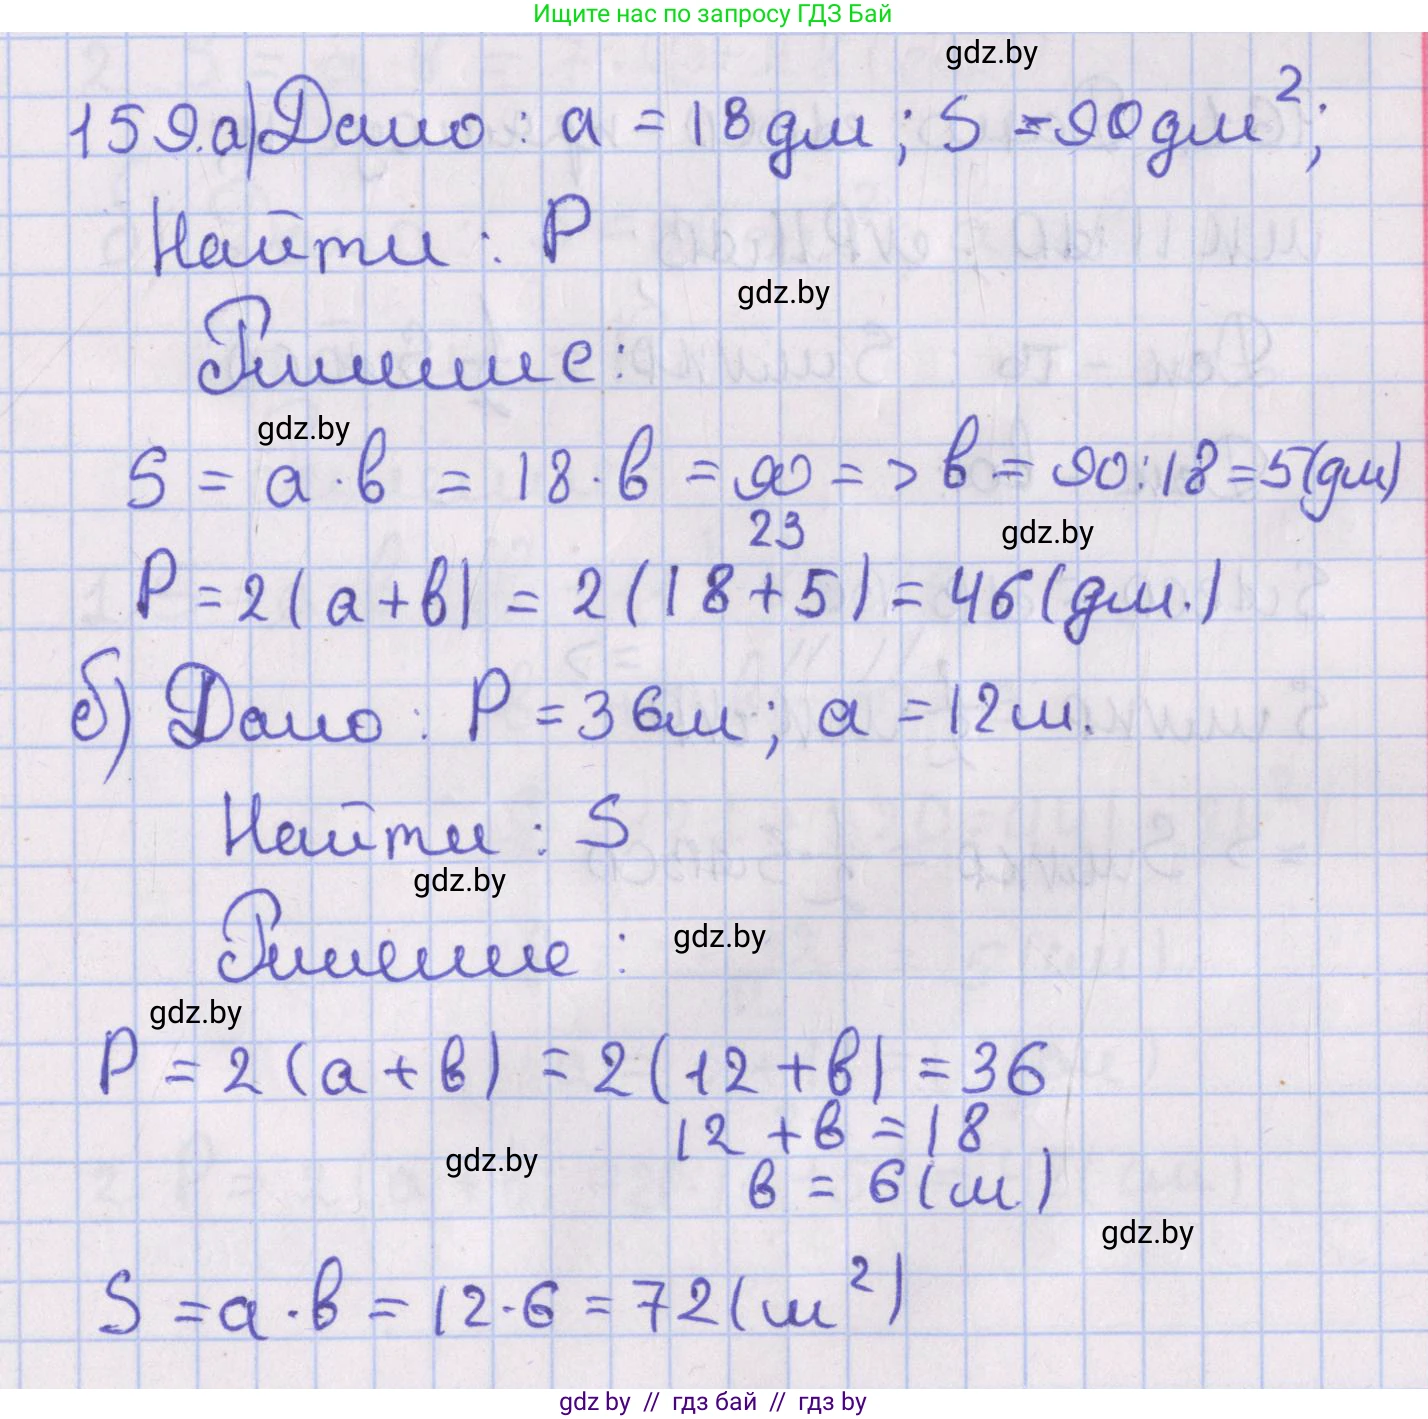 Ищите нас по запросу ГДЗ Бай
gdz.by
159.а) Дано: a = 18 дм; S = 90 дм²;
Найти: P
gdz.by
Решение:
gdz.by
S = a · b = 18 · b = 90 => b = 90 : 18 = 5 (дм)
23
gdz.by
P = 2(a + b) = 2(18 + 5) = 46 (дм.)
б) Дано: P = 36 м; a = 12 м.
Найти: S
gdz.by
Решение:
gdz.by
gdz.by
P = 2(a + b) = 2(12 + b) = 36
12 + b = 18
gdz.by
b = 6 (м)
gdz.by
S = a · b = 12 · 6 = 72 (м²)
gdz by // гдз бай // гдз by